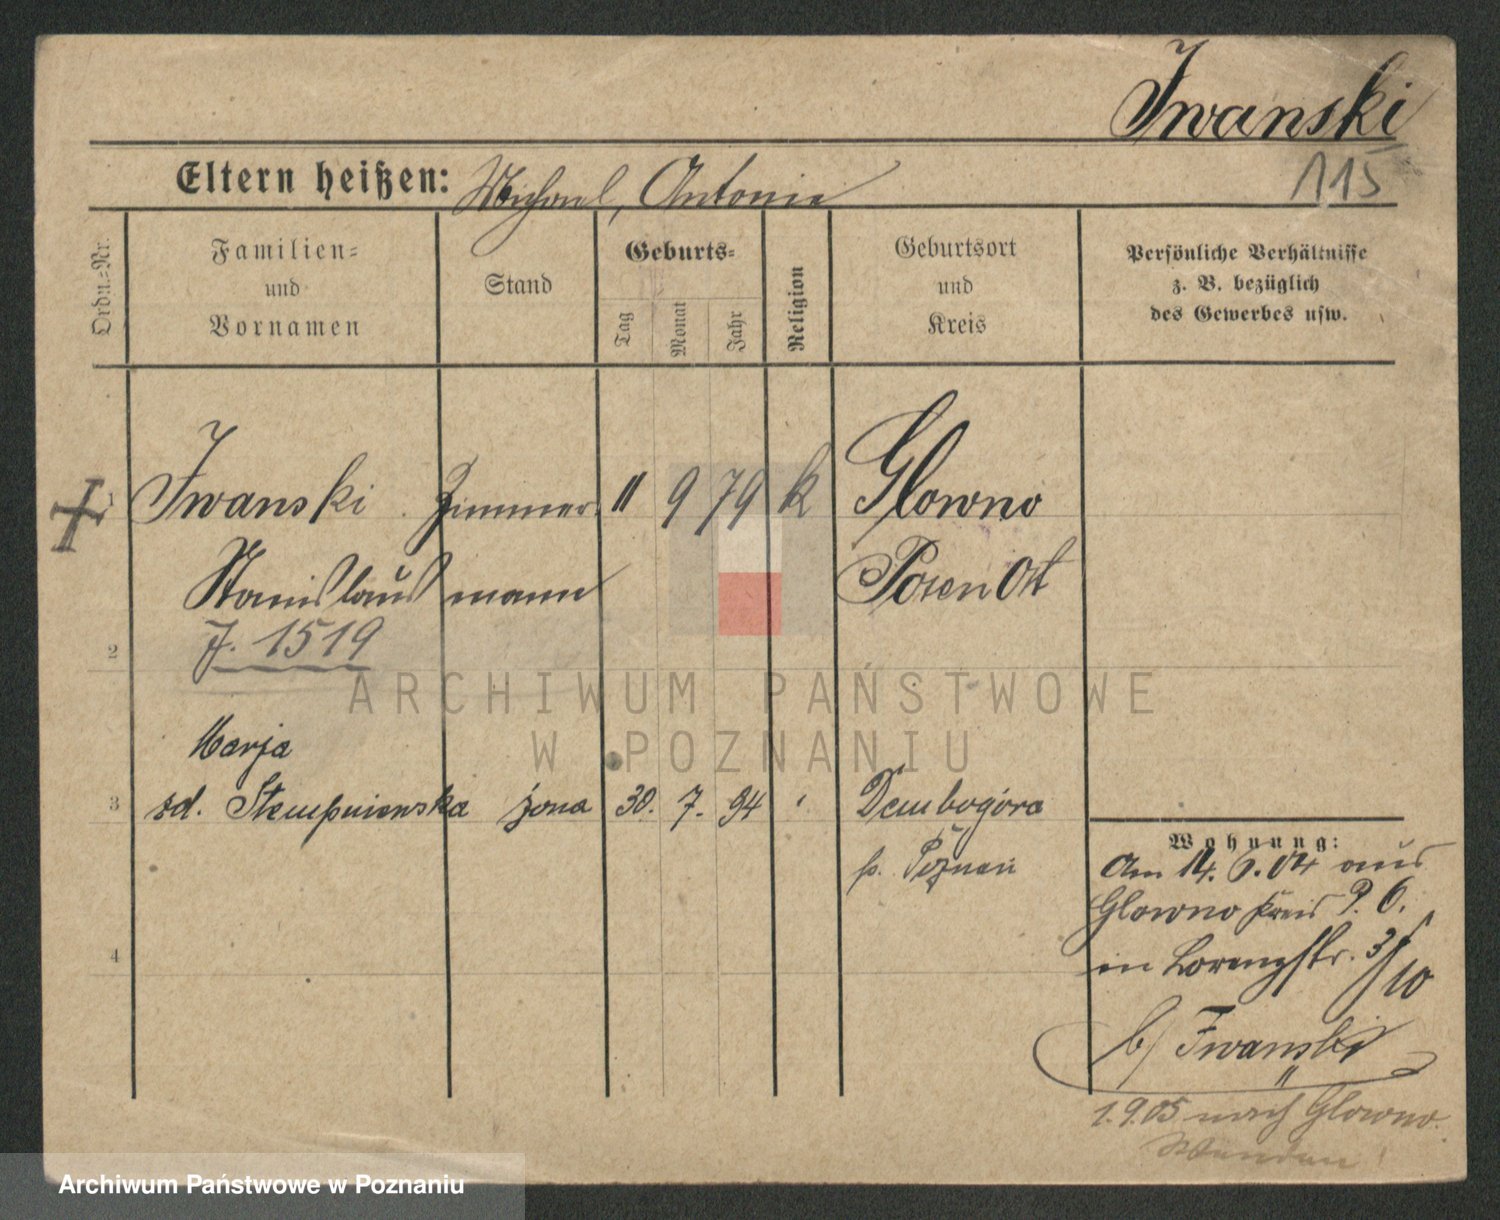 Iwanski
115
Eltern heißen: Michael, Antonie
Ordn.-Nr.
Familien-
und
Vornamen
Stand
Geburts-
Tag
Monat
Jahr
Religion
Geburtsort
und
Kreis
Persönliche Verhältnisse
z. B. bezüglich
des Gewerbes usw.
1 Iwanski Zimmer 11 9 79 k Glowno
Stanislaus mann Posen Ost
J. 1519
2
ARCHIWUM PAŃSTWOWE
W POZNANIU
Marja
3 zd. Stempniewska żona 30. 7. 94 Dembogóra
p. Poznań
4
Wohnung:
Am 14. 6. 04 aus
Glowno Kreis P. O.
in Lorenzstr. 3/10
b/ Iwanski
1.9.05 nach Glowno.
Wenden!
Archiwum Państwowe w Poznaniu